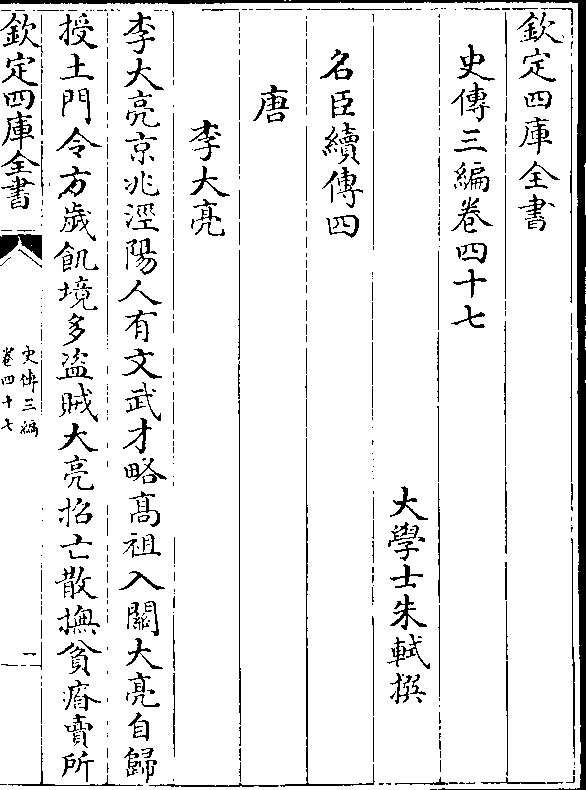 欽定四庫全書
史傳三編卷四十七
大學士朱軾撰
名臣續傳四
唐
李大亮
李大亮京兆涇陽人有文武才略髙祖入關大亮自歸
授土門令方歲飢境多盜賊大亮招亡散撫貧瘠賣所
欽定四庫全書
史傳三編
卷四十七
一